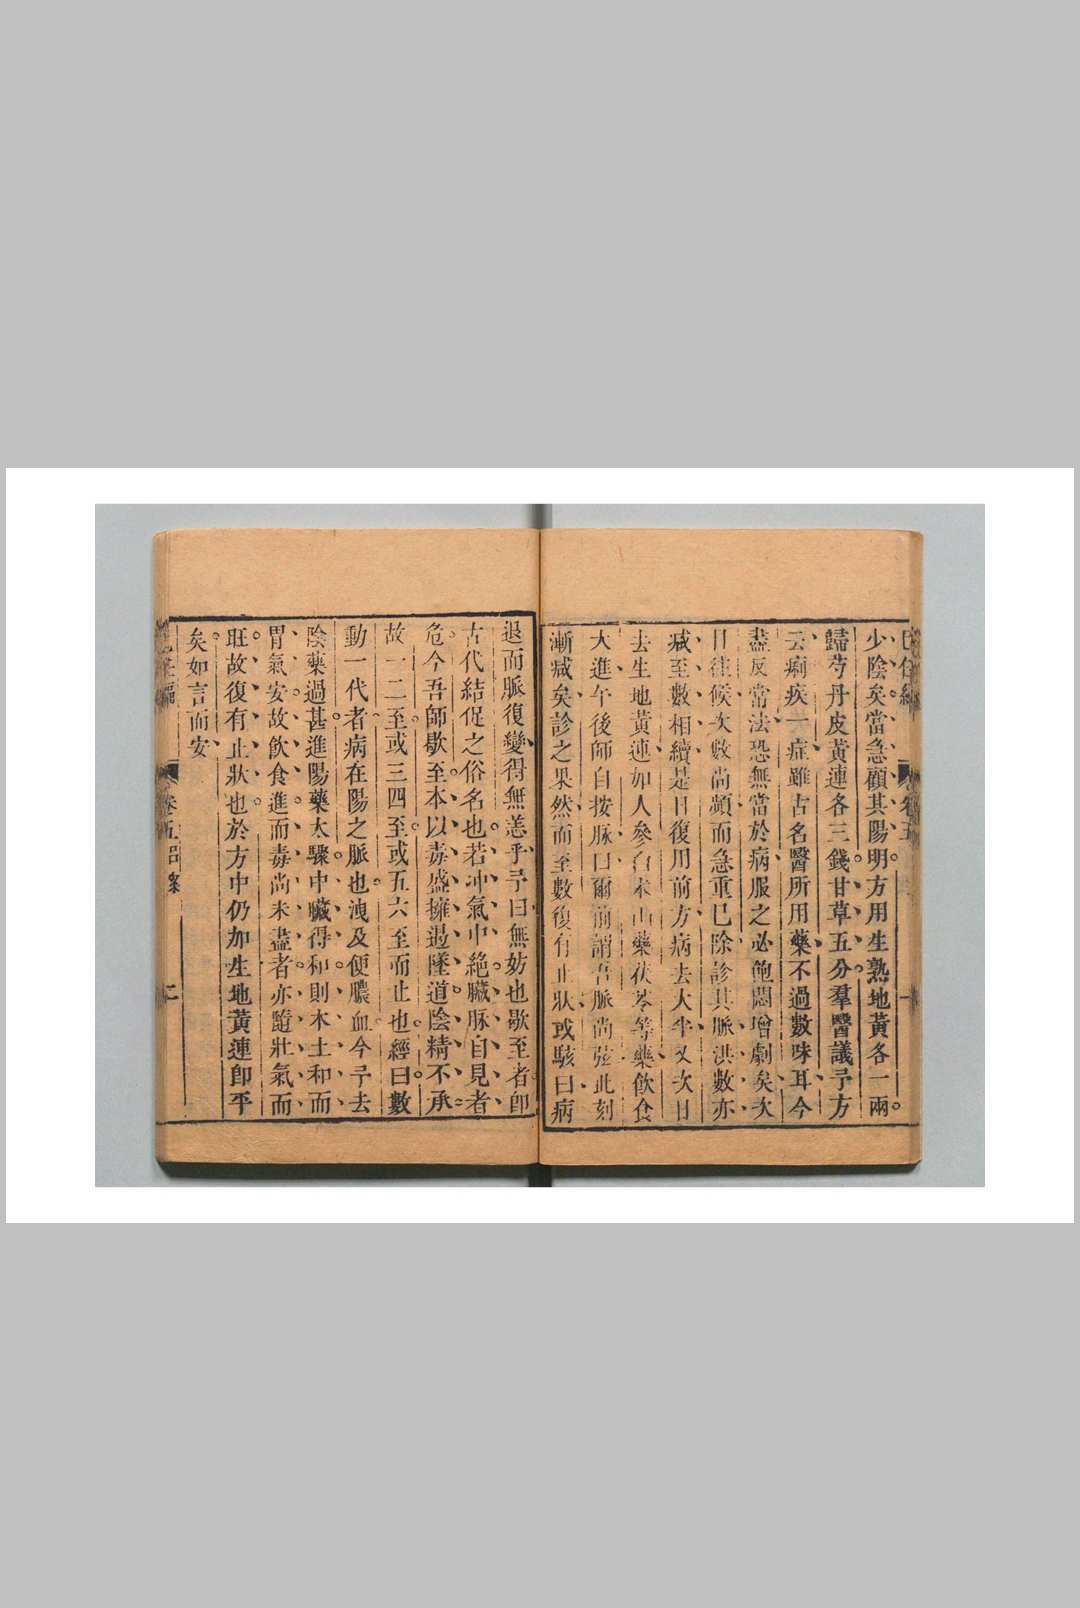 少陰矣當急顧其陽明方用生熟地黃各一兩
歸芍丹皮黃連各三錢甘草五分羣醫議予方
云痢疾一症雖古名醫所用藥不過數味耳今
盡反常法恐無當於病服之必飽悶增劇矣次
日往候次數尚頻而急重已除診其脈洪數亦
减至數相續是日復用前方病去大半又次日
去生地黃連加人參白朮山藥茯苓等藥飲食
大進午後師自按脈曰爾前謂吾脈尚弦此刻
漸减矣診之果然而至數復有止狀或駭曰病
退而脈復變得無恙乎予曰無妨也歇至者即
古代結促之俗名也若冲氣中絶臟脉自見者
危今吾師歇至本以毒盛擁遏墜道陰精不承
故一二至或三四至或五六至而止也經曰數
動一代者病在陽之脈也洩及便膿血今予去
陰藥過甚進陽藥太驟中臟得和則木土和而
胃氣安故飲食進而毒尚未盡者亦隨壯氣而
旺故復有止狀也於方中仍加生地黃連即平
矣如言而安
卷五 呂案 二